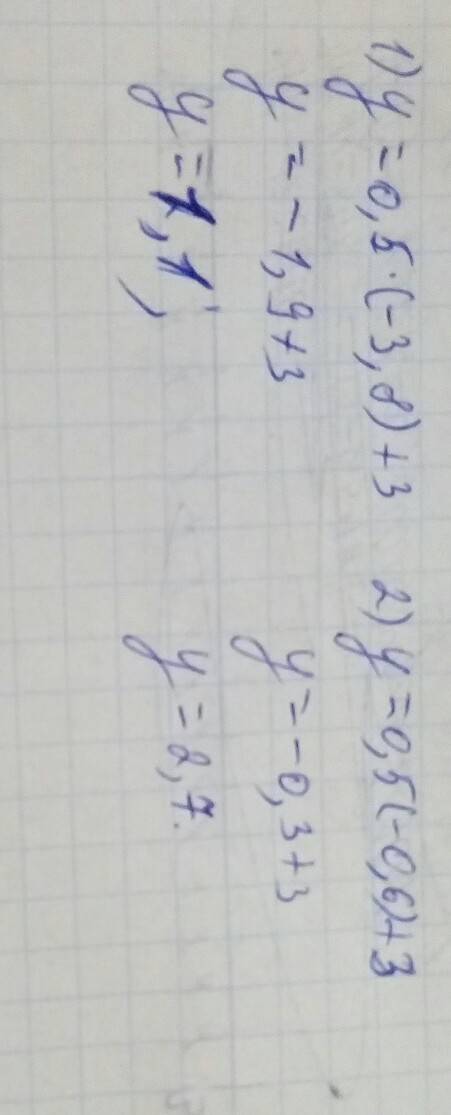 1) y = 0,5·(-3,8)+3
y = -1,9+3
y = 1,1;
2) y = 0,5(-0,6)+3
y = -0,3+3
y = 2,7.